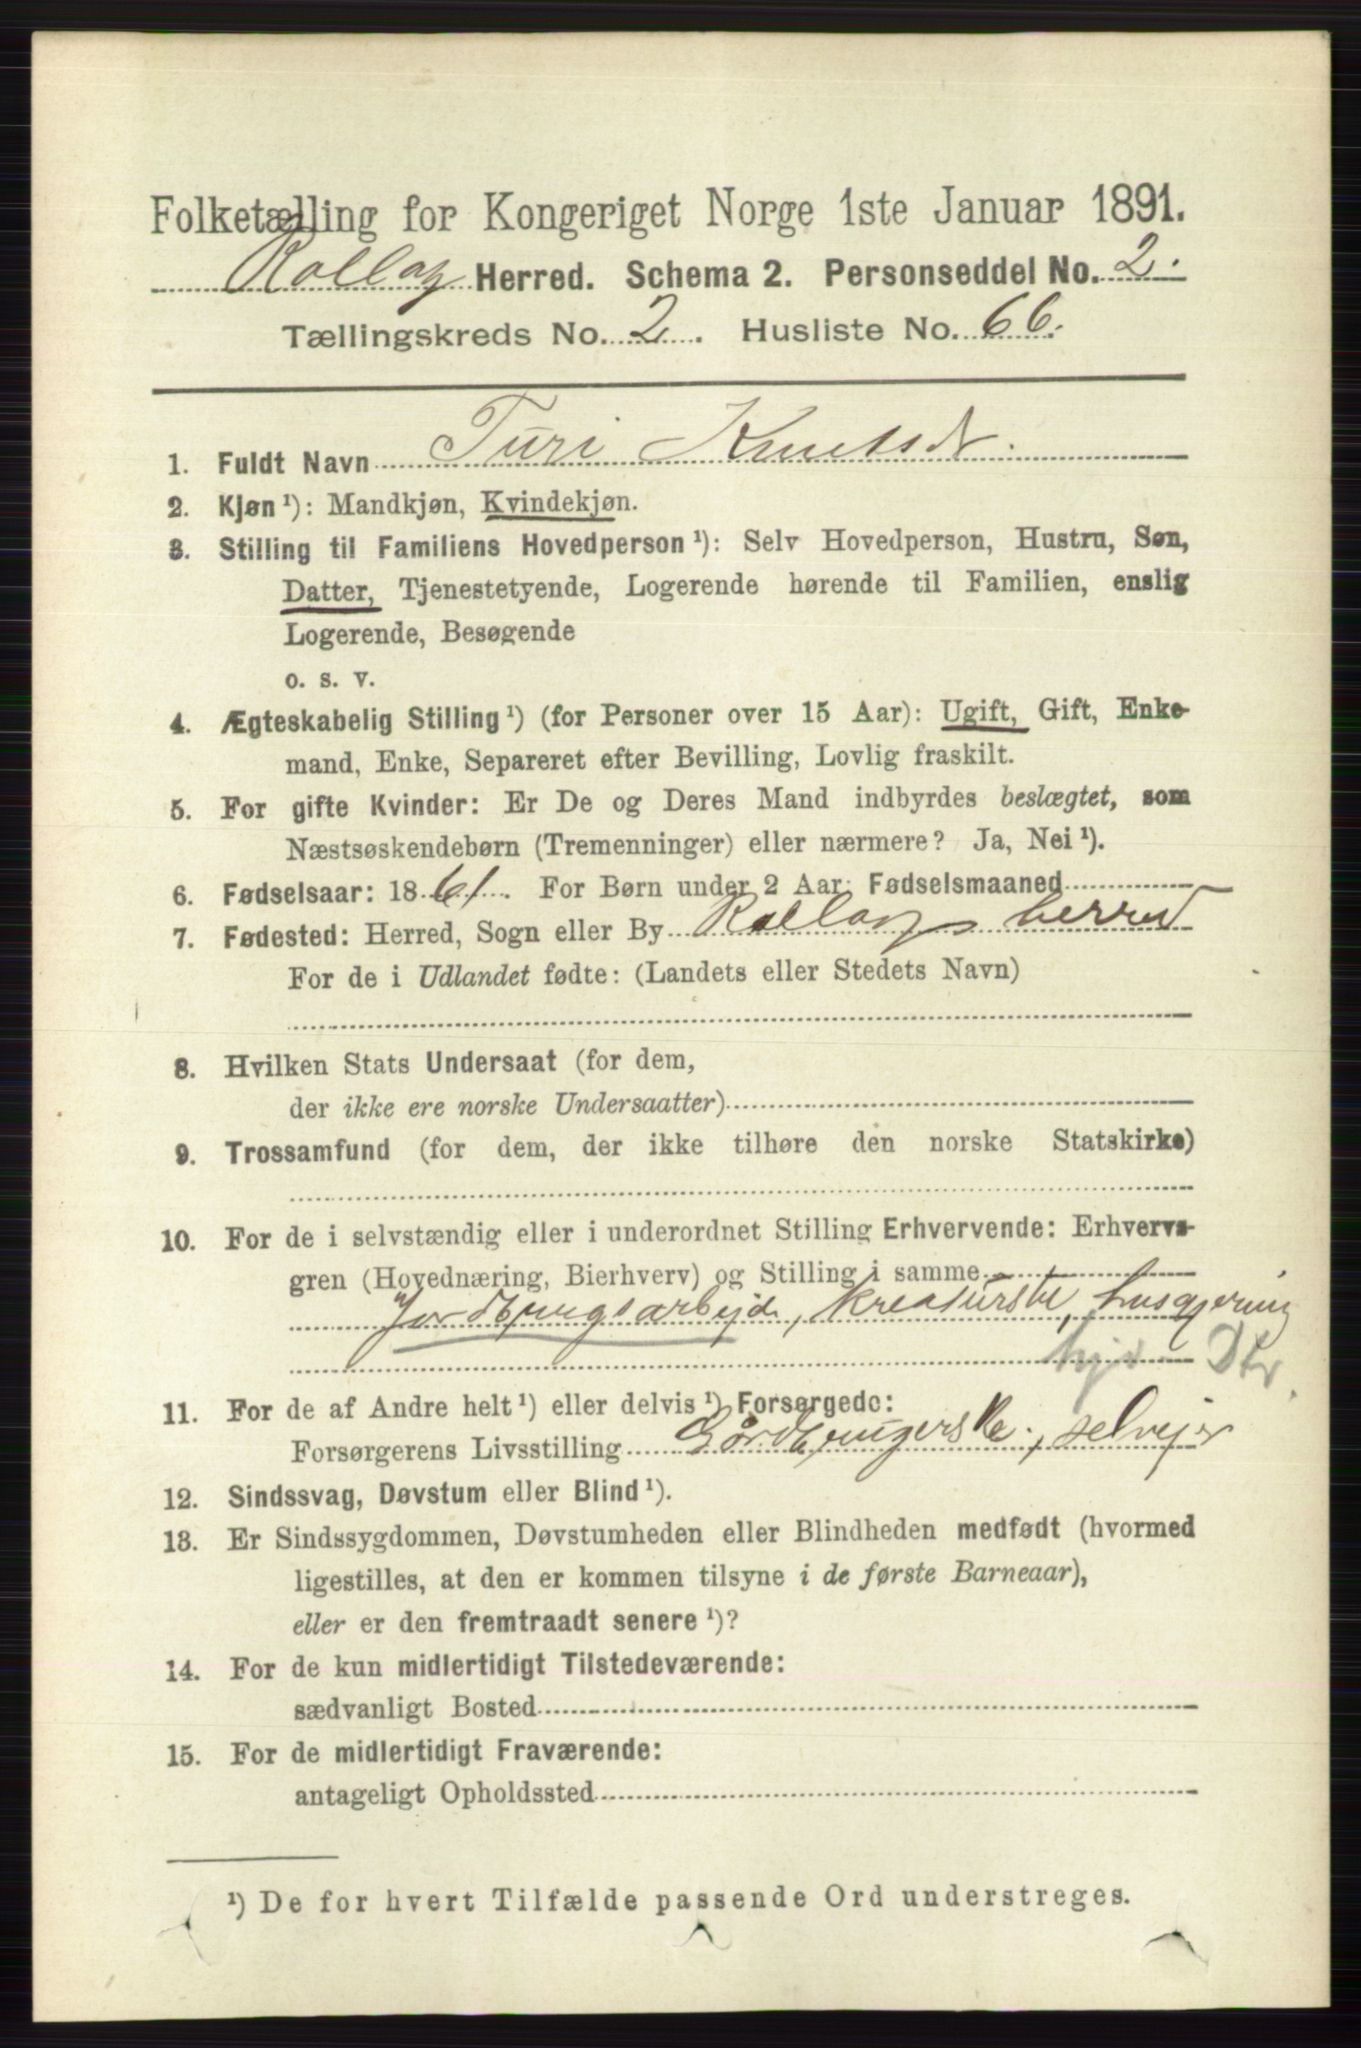 Folketælling for Kongeriget Norge 1ste Januar 1891.
Rollag Herred. Schema 2. Personseddel No. 2.
Tællingskreds No. 2. Husliste No. 66.
1. Fuldt Navn Turi Knutsdr.
2. Kjøn¹): Mandkjøn, Kvindekjøn.
3. Stilling til Familiens Hovedperson¹): Selv Hovedperson, Hustru, Søn,
Datter, Tjenestetyende, Logerende hørende til Familien, enslig
Logerende, Besøgende
o. s. v.
4. Ægteskabelig Stilling¹) (for Personer over 15 Aar): Ugift, Gift, Enke-
mand, Enke, Separeret efter Bevilling, Lovlig fraskilt.
5. For gifte Kvinder: Er De og Deres Mand indbyrdes beslægtet, som
Næstsøskendebørn (Tremenninger) eller nærmere? Ja, Nei¹).
6. Fødselsaar: 1861. For Børn under 2 Aar: Fødselsmaaned
7. Fødested: Herred, Sogn eller By Rollags herred
For de i Udlandet fødte: (Landets eller Stedets Navn)
8. Hvilken Stats Undersaat (for dem,
der ikke ere norske Undersaatter)
9. Trossamfund (for dem, der ikke tilhøre den norske Statskirke)
10. For de i selvstændig eller i underordnet Stilling Erhvervende: Erhvervs-
gren (Hovednæring, Bierhverv) og Stilling i samme
Jordbrugsarbejde, kreaturste, husgjerning
hjv Dtr.
11. For de af Andre helt¹) eller delvis¹) Forsørgede:
Forsørgerens Livsstilling Gårdbrugerske, selvejer
12. Sindssvag, Døvstum eller Blind¹).
13. Er Sindssygdommen, Døvstumheden eller Blindheden medfødt (hvormed
ligestilles, at den er kommen tilsyne i de første Barneaar),
eller er den fremtraadt senere¹)?
14. For de kun midlertidigt Tilstedeværende:
sædvanligt Bosted
15. For de midlertidigt Fraværende:
antageligt Opholdssted
¹) De for hvert Tilfælde passende Ord understreges.